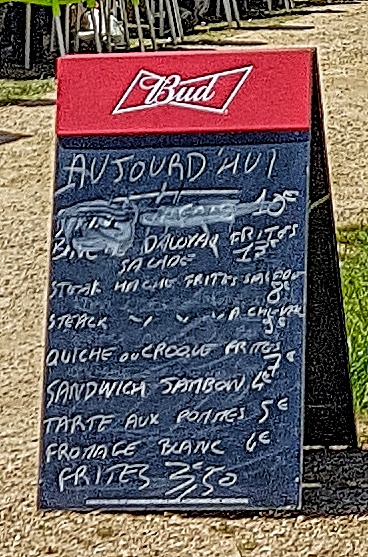 Bud
AUJOURD'HUI
FRITES
SALADE
STEAK HACHÉ FRITES SALADE
8€
STEACK " " " A CHEVAL
9€
QUICHE ou CROQUE FRITES
7€
SANDWICH JAMBON 4€
TARTE AUX POMMES 5€
FROMAGE BLANC 4€
FRITES 3€50